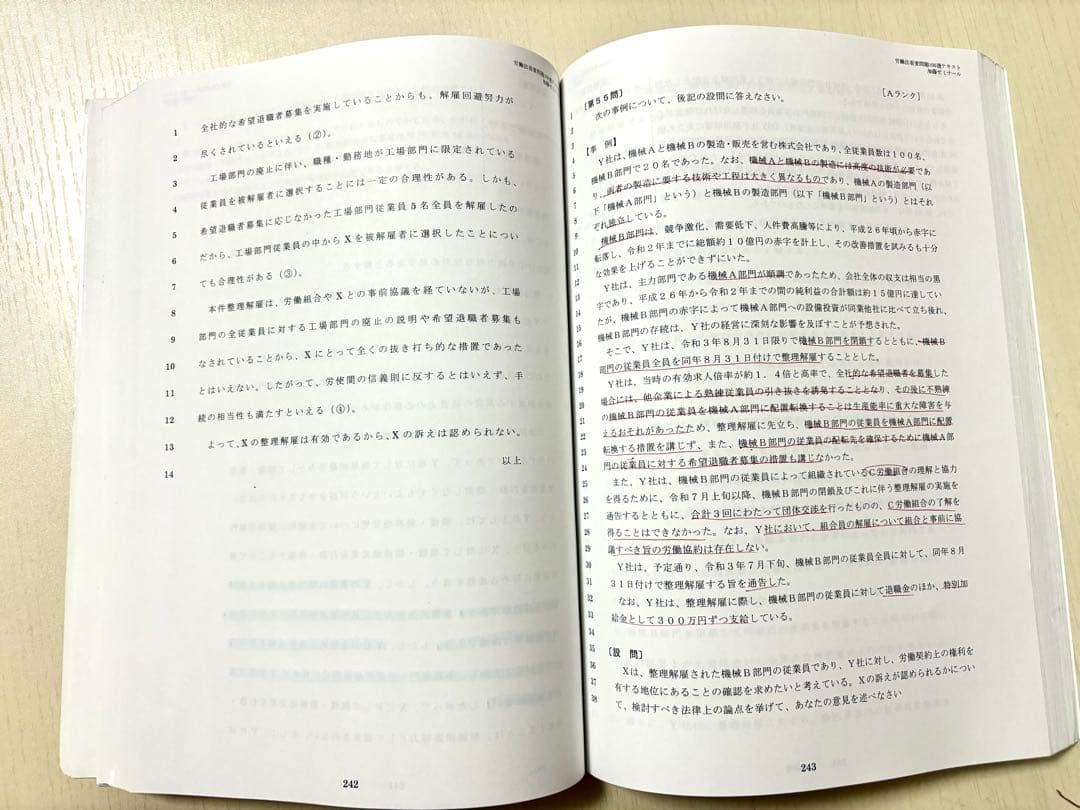 労働法重要問題100選
加藤ゼミ
1 全社的な希望退職者募集を実施していることからも、解雇回避努力が
2 尽くされているといえる（②）。
3 工場部門の廃止に伴い、職種・勤務地が工場部門に限定されている
4 従業員を被解雇者に選択することには一定の合理性がある。しかも、
5 希望退職者募集に応じなかった工場部門従業員5名全員を解雇したの
6 だから、工場部門従業員の中からXを被解雇者に選択したことについ
7 ても合理性がある（③）。
8 本件整理解雇は、労働組合やXとの事前協議を経ていないが、工場
9 部門の全従業員に対する工場部門の廃止の説明や希望退職者募集も
10 なされていることから、Xにとって全くの抜き打ち的な措置であった
11 とはいえない。したがって、労使間の信義則に反するとはいえず、手
12 続の相当性も満たすといえる（④）。
13 よって、Xの整理解雇は有効であるから、Xの訴えは認められない。
14 以上
242
労働法重要問題100選テキスト
加藤ゼミナール
1 [第55問] [Aランク]
2 次の事例について、後記の設問に答えなさい。
3
4 【事 例】
5 Y社は、機械Aと機械Bの製造・販売を営む株式会社であり、全従業員数は100名、
6 機械B部門で20名であった。なお、機械Aと機械Bの製造には高度の技術が必要であ
7 り、両者の製造に要する技術や工程は大きく異なるものであり、機械Aの製造部門（以
8 下「機械A部門」という）と機械Bの製造部門（以下「機械B部門」という）とはそれ
9 ぞれ独立している。
10 機械B部門は、競争激化、需要低下、人件費高騰等により、平成26年頃から赤字に
11 転落し、令和2年までに総額約10億円の赤字を計上し、その改善措置を試みるも十分
12 な効果を上げることができずにいた。
13 Y社は、主力部門である機械A部門が順調であったため、会社全体の収支は相当の黒
14 字であり、平成26年から令和2年までの間の純利益の合計額は約15億円に達してい
15 たが、機械B部門の赤字によって機械A部門への設備投資が同業他社に比べて立ち後れ、
16 機械B部門の存続は、Y社の経営に深刻な影響を及ぼすことが予想された。
17 そこで、Y社は、令和3年8月31日限りで機械B部門を閉鎖するとともに、機械B
18 部門の従業員全員を同年8月31日付けで整理解雇することとした。
19 Y社は、当時の有効求人倍率が約1．4倍と高率で、全社的な希望退職者を募集した
20 場合には、他企業による熟練従業員の引き抜きを誘発することとなり、その後に不熟練
21 の機械B部門の従業員を機械A部門に配置転換することは生産能率に重大な障害を与
22 えるおそれがあったため、整理解雇に先立ち、機械B部門の従業員を機械A部門に配置
23 転換する措置を講じず、また、機械B部門の従業員の配転先を確保するために機械A部
24 門の従業員に対する希望退職者募集の措置も講じなかった。
25 また、Y社は、機械B部門の従業員によって組織されているC労働組合の理解と協力
26 を得るために、令和7月上旬以降、機械B部門の閉鎖及びこれに伴う整理解雇の実施を
27 通告するとともに、合計3回にわたって団体交渉を行ったものの、C労働組合の了解を
28 得ることはできなかった。なお、Y社において、組合員の解雇について組合と事前に協
29 議すべき旨の労働協約は存在しない。
30 Y社は、予定通り、令和3年7月下旬、機械B部門の従業員全員に対して、同年8月
31 31日付けで整理解雇する旨を通告した。
32 なお、Y社は、整理解雇に際し、機械B部門の従業員に対して退職金のほか、特別加
33 給金として300万円ずつ支給している。
34
35 [設 問]
36 Xは、整理解雇された機械B部門の従業員であり、Y社に対し、労働契約上の権利を
37 有する地位にあることの確認を求めたいと考えている。Xの訴えが認められるかについ
38 て、検討すべき法律上の論点を挙げて、あなたの意見を述べなさい
243